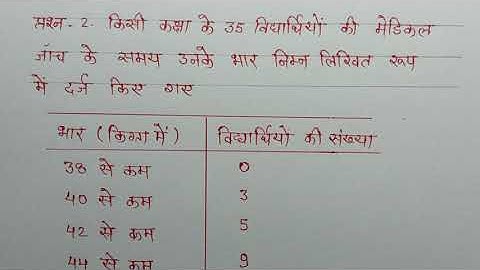 प्रश्न-2. किसी कक्षा के 35 विद्यार्थियों की मेडिकल
जाँच के समय उनके भार निम्न लिखित रूप
में दर्ज किए गए
भार (किग्रा में) विद्यार्थियों की संख्या
38 से कम 0
40 से कम 3
42 से कम 5
44 से कम 9